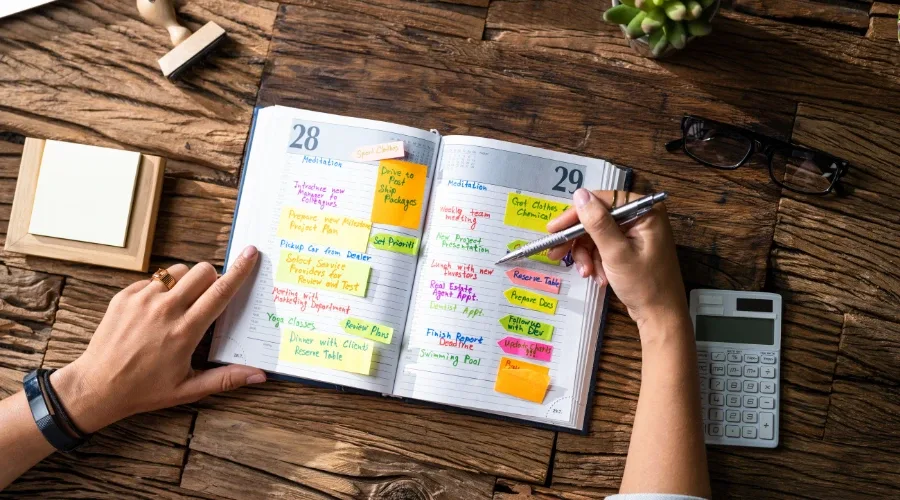 28
Meditation
Introduce new
Manager to
Colleagues
Drive to
Post
Ship
Packages
Prepare new
Project Plan
Set Priorities
Pickup Car from Dealer
Select Service
Providers for
Review and Test
Meeting with
Marketing Department
Yoga Classes
Review Plans
Dinner with Clients
Reserve Table
29
Meditation
Get Clothes
Chemical
Weekly team
meeting
New Project
Presentation
Lunch with new
investors
Reserve Table
Real Estate
Agent Appt.
Prepare Docs
Dentist Appt.
Followup
with Dev
Finish Report
Deadline
Swimming Pool